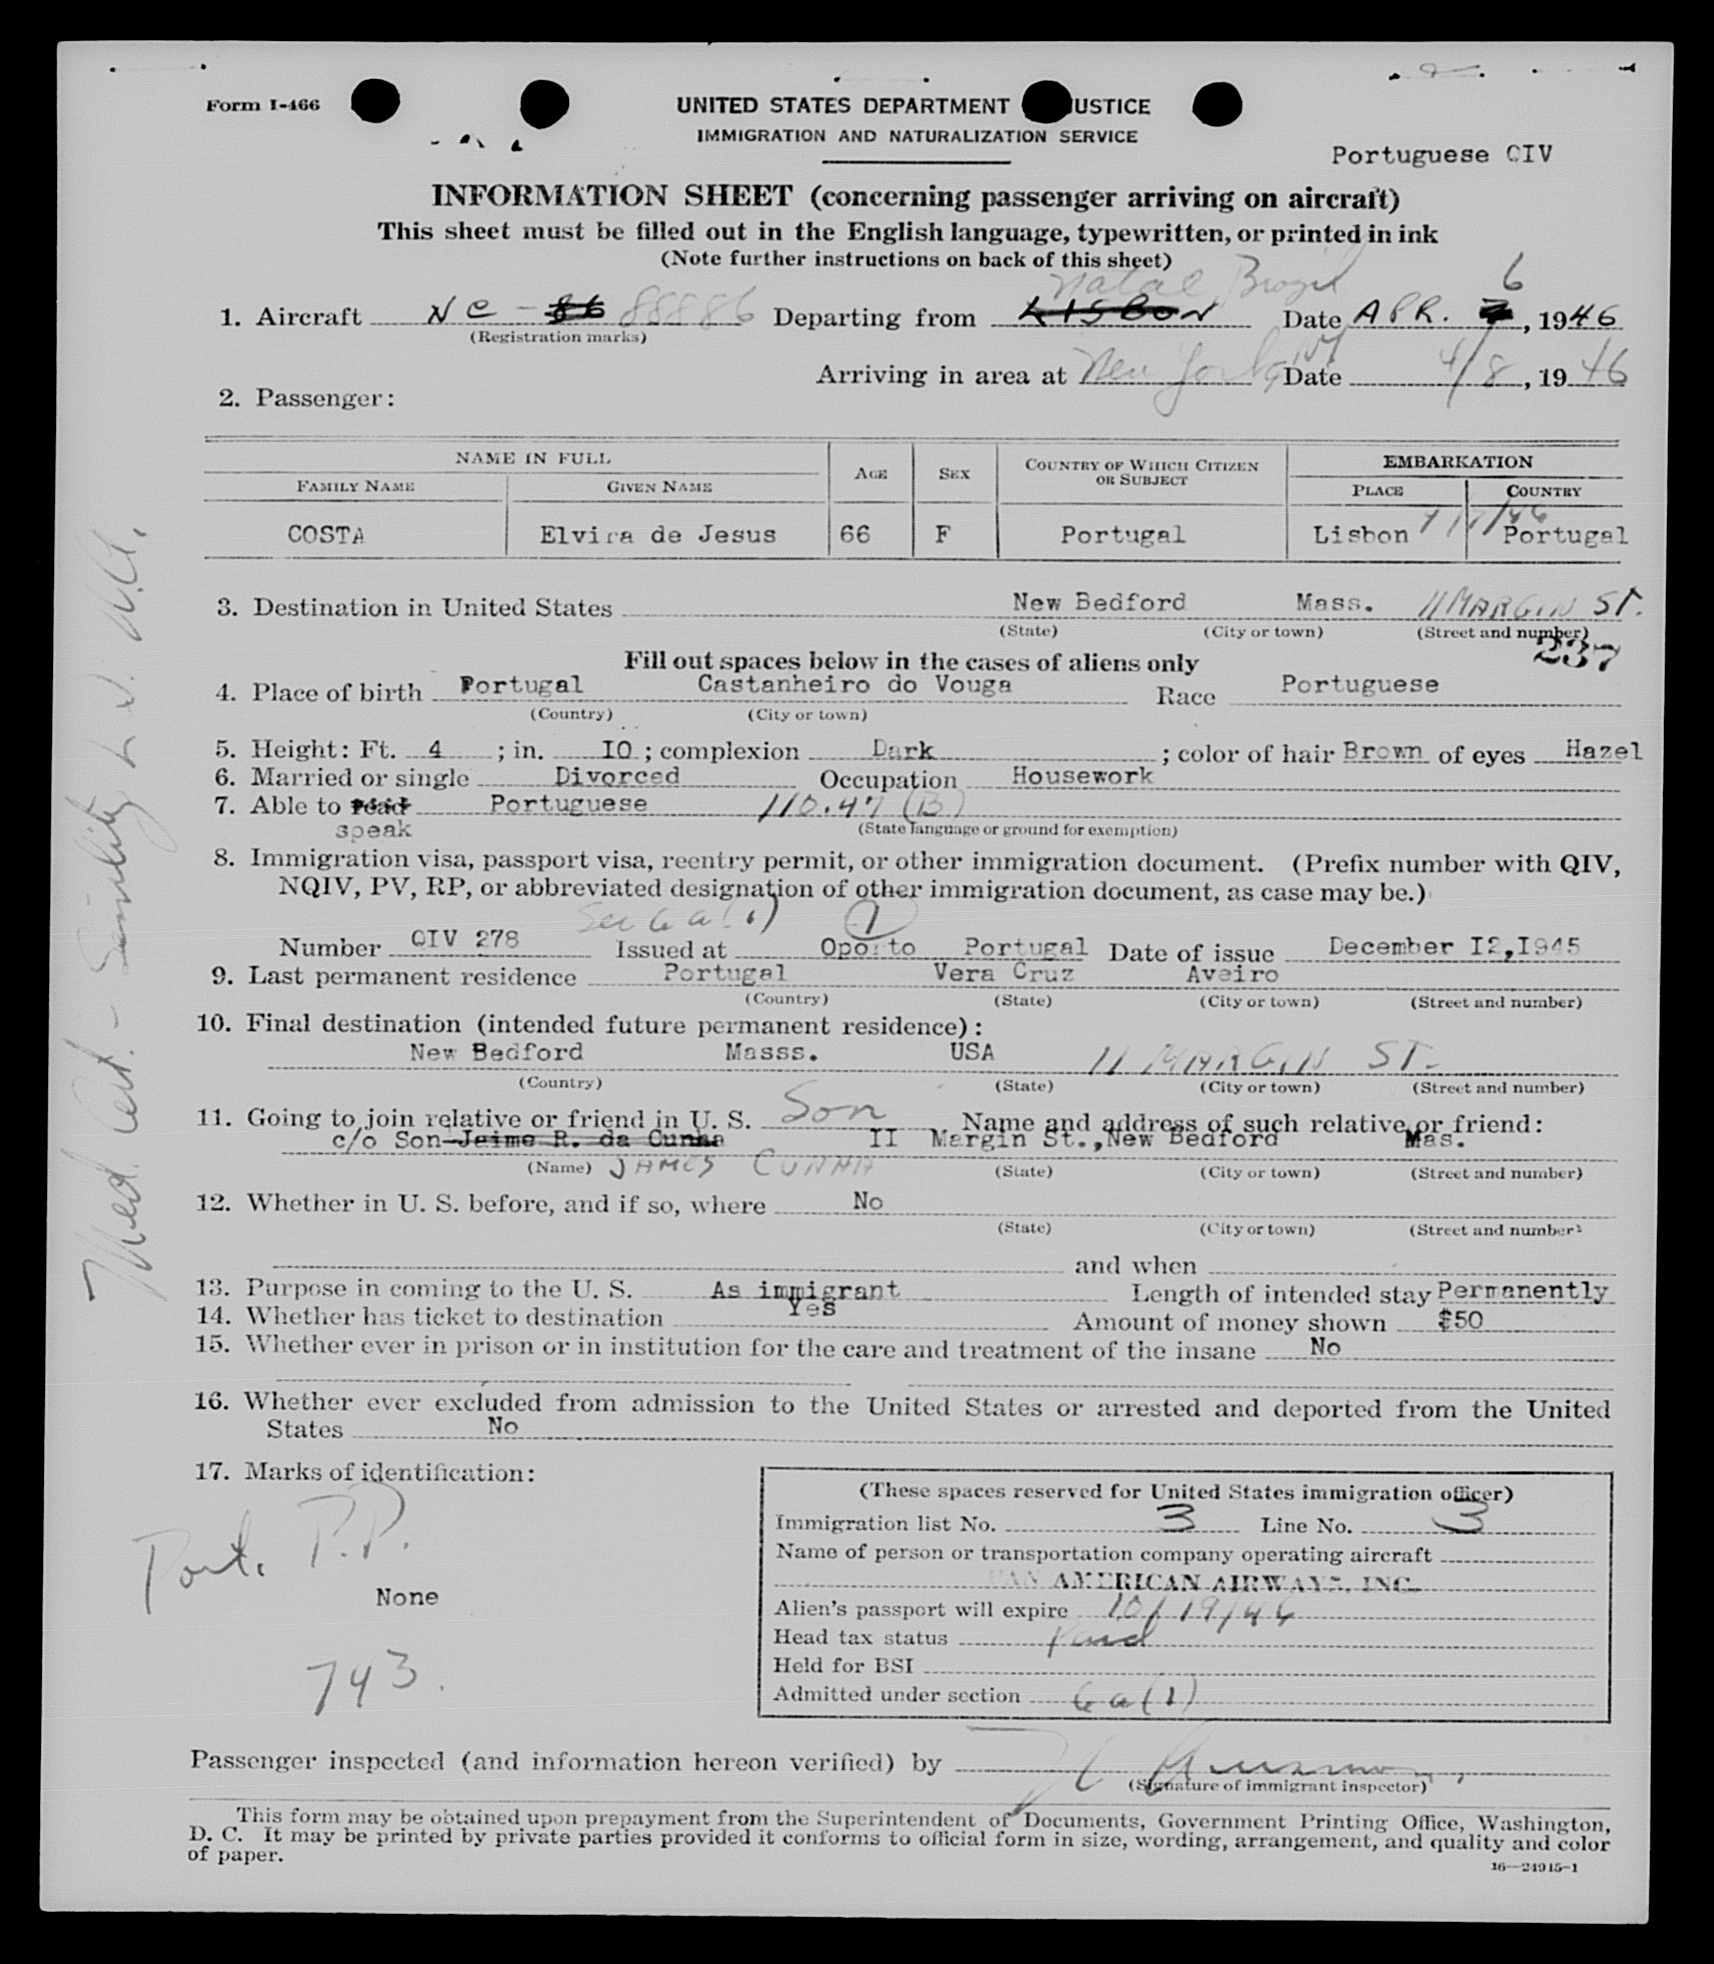 Form I-466
UNITED STATES DEPARTMENT USTICE
IMMIGRATION AND NATURALIZATION SERVICE
Portuguese QIV
INFORMATION SHEET (concerning passenger arriving on aircraft)
This sheet must be filled out in the English language, typewritten, or printed in ink
(Note further instructions on back of this sheet)
Natal, Brazil 6
1. Aircraft NC - 86 88886 Departing from LISBON Date APR. 7, 1946
(Registration marks)
Arriving in area at New York, NY Date 4/8, 1946
2. Passenger:
NAME IN FULL
FAMILY NAME GIVEN NAME AGE SEX COUNTRY OF WHICH CITIZEN OR SUBJECT EMBARKATION
PLACE COUNTRY
COSTA Elvira de Jesus 66 F Portugal Lisbon 4/7/46 Portugal
3. Destination in United States New Bedford Mass. 11 MARGIN ST.
(State) (City or town) (Street and number)
237
Fill out spaces below in the cases of aliens only
4. Place of birth Portugal Castanheiro do Vouga Race Portuguese
(Country) (City or town)
5. Height: Ft. 4 ; in. IO ; complexion Dark ; color of hair Brown of eyes Hazel
6. Married or single Divorced Occupation Housework
7. Able to read Portuguese 110.47 (B)
speak (State language or ground for exemption)
8. Immigration visa, passport visa, reentry permit, or other immigration document. (Prefix number with QIV,
NQIV, PV, RP, or abbreviated designation of other immigration document, as case may be.)
Sec 6a(1) 1
Number QIV 278 Issued at Oporto Portugal Date of issue December I2,I945
9. Last permanent residence Portugal Vera Cruz Aveiro
(Country) (State) (City or town) (Street and number)
10. Final destination (intended future permanent residence):
New Bedford Masss. USA 11 MARGIN ST.
(Country) (State) (City or town) (Street and number)
11. Going to join relative or friend in U. S. Son Name and address of such relative or friend:
c/o Son-Jaime R. da Cunha II Margin St.,New Bedford Mas.
(Name) JAMES CUNHA (State) (City or town) (Street and number)
12. Whether in U. S. before, and if so, where No
(State) (City or town) (Street and number)
and when
13. Purpose in coming to the U. S. As immigrant Length of intended stay Permanently
14. Whether has ticket to destination Yes Amount of money shown $50
15. Whether ever in prison or in institution for the care and treatment of the insane No
16. Whether ever excluded from admission to the United States or arrested and deported from the United
States No
17. Marks of identification:
Port. P.P.
None
743.
(These spaces reserved for United States immigration officer)
Immigration list No. 3 Line No. 3
Name of person or transportation company operating aircraft
PAN AMERICAN AIRWAYS, INC.
Alien's passport will expire 10/19/46
Head tax status Paid
Held for BSI
Admitted under section 6a(1)
Passenger inspected (and information hereon verified) by
(Signature of immigrant inspector)
This form may be obtained upon prepayment from the Superintendent of Documents, Government Printing Office, Washington,
D. C. It may be printed by private parties provided it conforms to official form in size, wording, arrangement, and quality and color
of paper.
16—24915-1
Med. Cert. - Senility